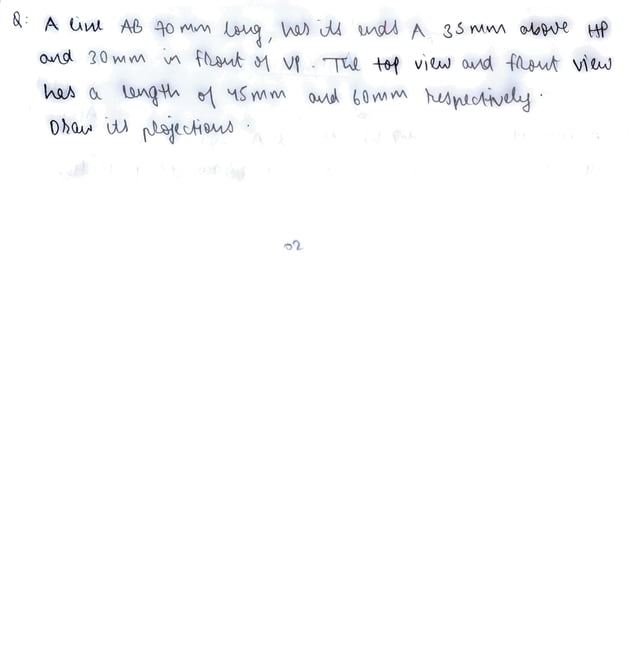 Q: A line AB 70 mm long, has its ends A 35 mm above HP
and 30 mm in front of VP. The top view and front view
has a length of 45mm and 60mm respectively.
Draw its projections.
02